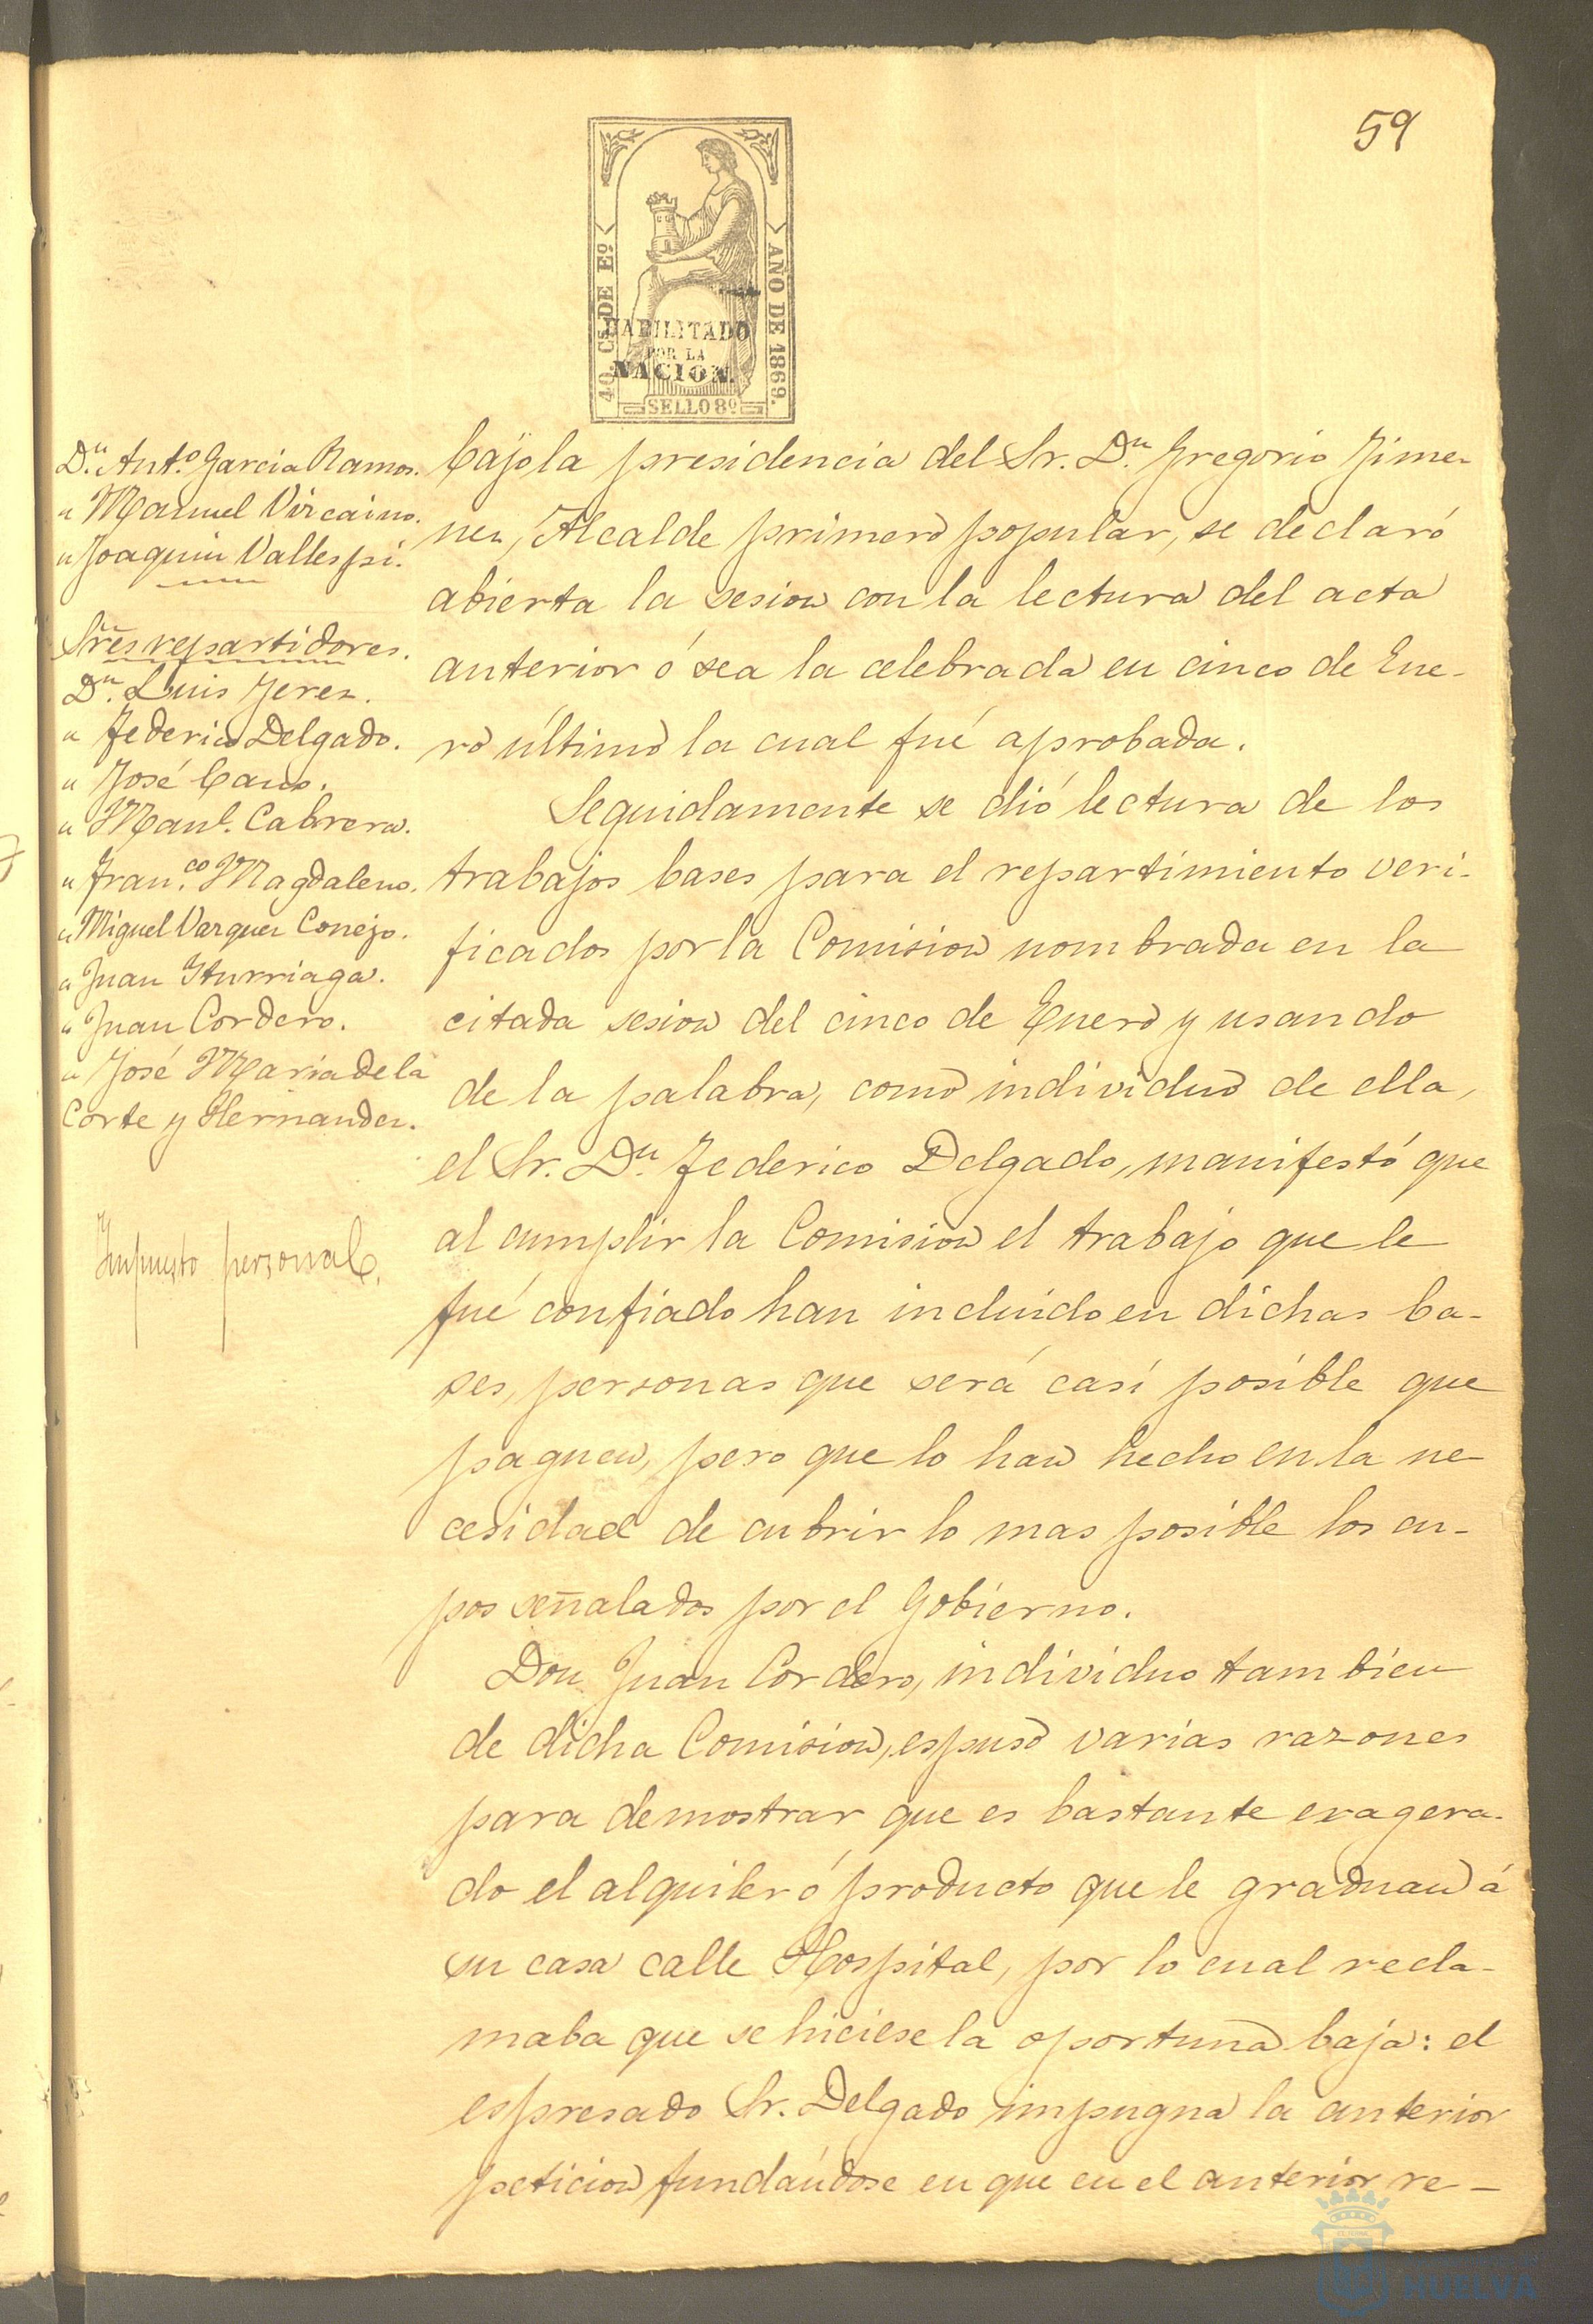 59
40 Cs. DE Eº
AÑO DE 1869.
HABILITADO
POR LA
NACION.
SELLO 8º
Dn. Anto. Garcia Ramos.
" Manuel Vizcaino.
" Joaquin Vallespi.
Sres repartidores.
Dn. Luis Jerez.
" Federico Delgado.
" José Cano.
" Manl. Cabrera.
" Franco. Magdaleno.
" Miguel Vazquez Conejo.
" Juan Iturriaga.
" Juan Cordero.
" José Maria de la
Corte y Hernandez.
Impuesto personal.
bajo la presidencia del Sr. Dn. Gregorio Jime-
nez, Alcalde primero popular, se declaró
abierta la sesion con la lectura del acta
anterior ó sea la celebrada en cinco de Ene-
ro último la cual fué aprobada.
Seguidamente se dió lectura de los
trabajos bases para el repartimiento veri-
ficados por la Comision nombrada en la
citada sesion del cinco de Enero y usando
de la palabra, como individuo de ella,
el Sr. Dn. Federico Delgado, manifestó que
al cumplir la Comision el trabajo que le
fué confiado han incluido en dichas ba-
ses, personas que será casi posible que
paguen, pero que lo han hecho en la ne-
cesidad de cubrir lo mas posible los cu-
pos señalados por el Gobierno.
Don Juan Cordero, individuo tambien
de dicha Comision, espuso varias razones
para demostrar que es bastante exagera-
do el alquiler ó producto que le graduan á
su casa calle Hospital, por lo cual recla-
maba que se hiciese la oportuna baja: el
espresado Sr. Delgado impugna la anterior
peticion fundándose en que en el anterior re-
HUELVA